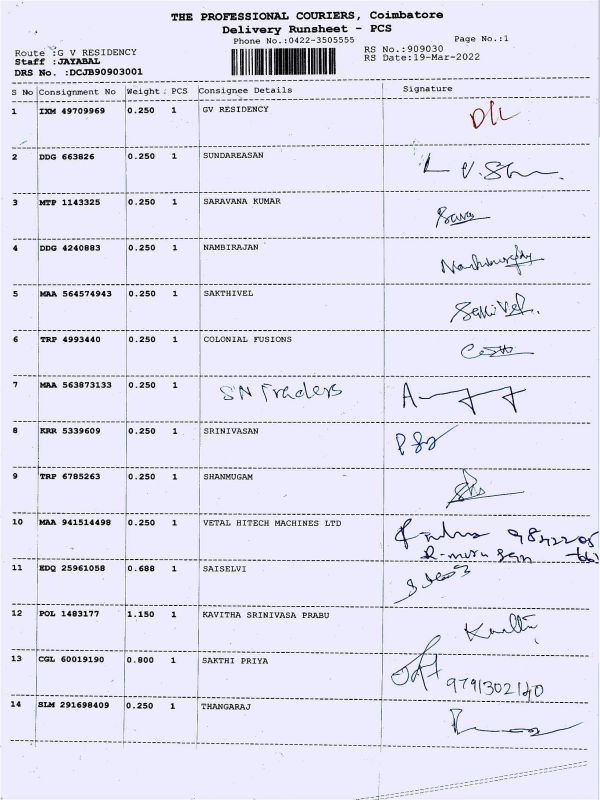 THE PROFESSIONAL COURIERS, Coimbatore
Delivery Runsheet - PCS
Phone No.:0422-3505555 Page No.:1
Route :G V RESIDENCY RS No.:909030
Staff :JAYABAL RS Date:19-Mar-2022
DRS No. :DCJB90903001
S No Consignment No Weight : PCS Consignee Details Signature
1 IXM 49709969 0.250 1 GV RESIDENCY
2 DDG 663826 0.250 1 SUNDAREASAN
3 MTP 1143325 0.250 1 SARAVANA KUMAR
4 DDG 4240883 0.250 1 NAMBIRAJAN
5 MAA 564574943 0.250 1 SAKTHIVEL
6 TRP 4993440 0.250 1 COLONIAL FUSIONS
7 MAA 563873133 0.250 1 SN Traders
8 KRR 5339609 0.250 1 SRINIVASAN
9 TRP 6785263 0.250 1 SHANMUGAM
10 MAA 941514498 0.250 1 VETAL HITECH MACHINES LTD
11 EDQ 25961058 0.688 1 SAISELVI
12 POL 1483177 1.150 1 KAVITHA SRINIVASA PRABU
13 CGL 60019190 0.800 1 SAKTHI PRIYA 9791302140
14 SLM 291698409 0.250 1 THANGARAJ